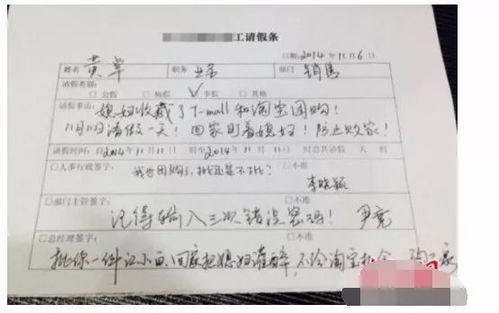 工请假条
日期:2014年11月6日
姓名 黄单 职务 业务 部门 销售
请假类别: □公假 □病假 ☑事假 □其他
请假事由:
媳妇收藏了T-mall和淘宝团购!
11月11日请假一天!回家盯着媳妇!防止败家!
请假时间:自2014年11月11日时至2014年11月11日时总共请假 天 时
□人事行政签字: □不准
我也团购了,批还是不批?
李晓颖
□部门主管签字: □不准
记得输入三次错误密码! 尹亮
□总经理签字: □不准
批你一件江小白,回家把媳妇灌醉,不给淘宝机会